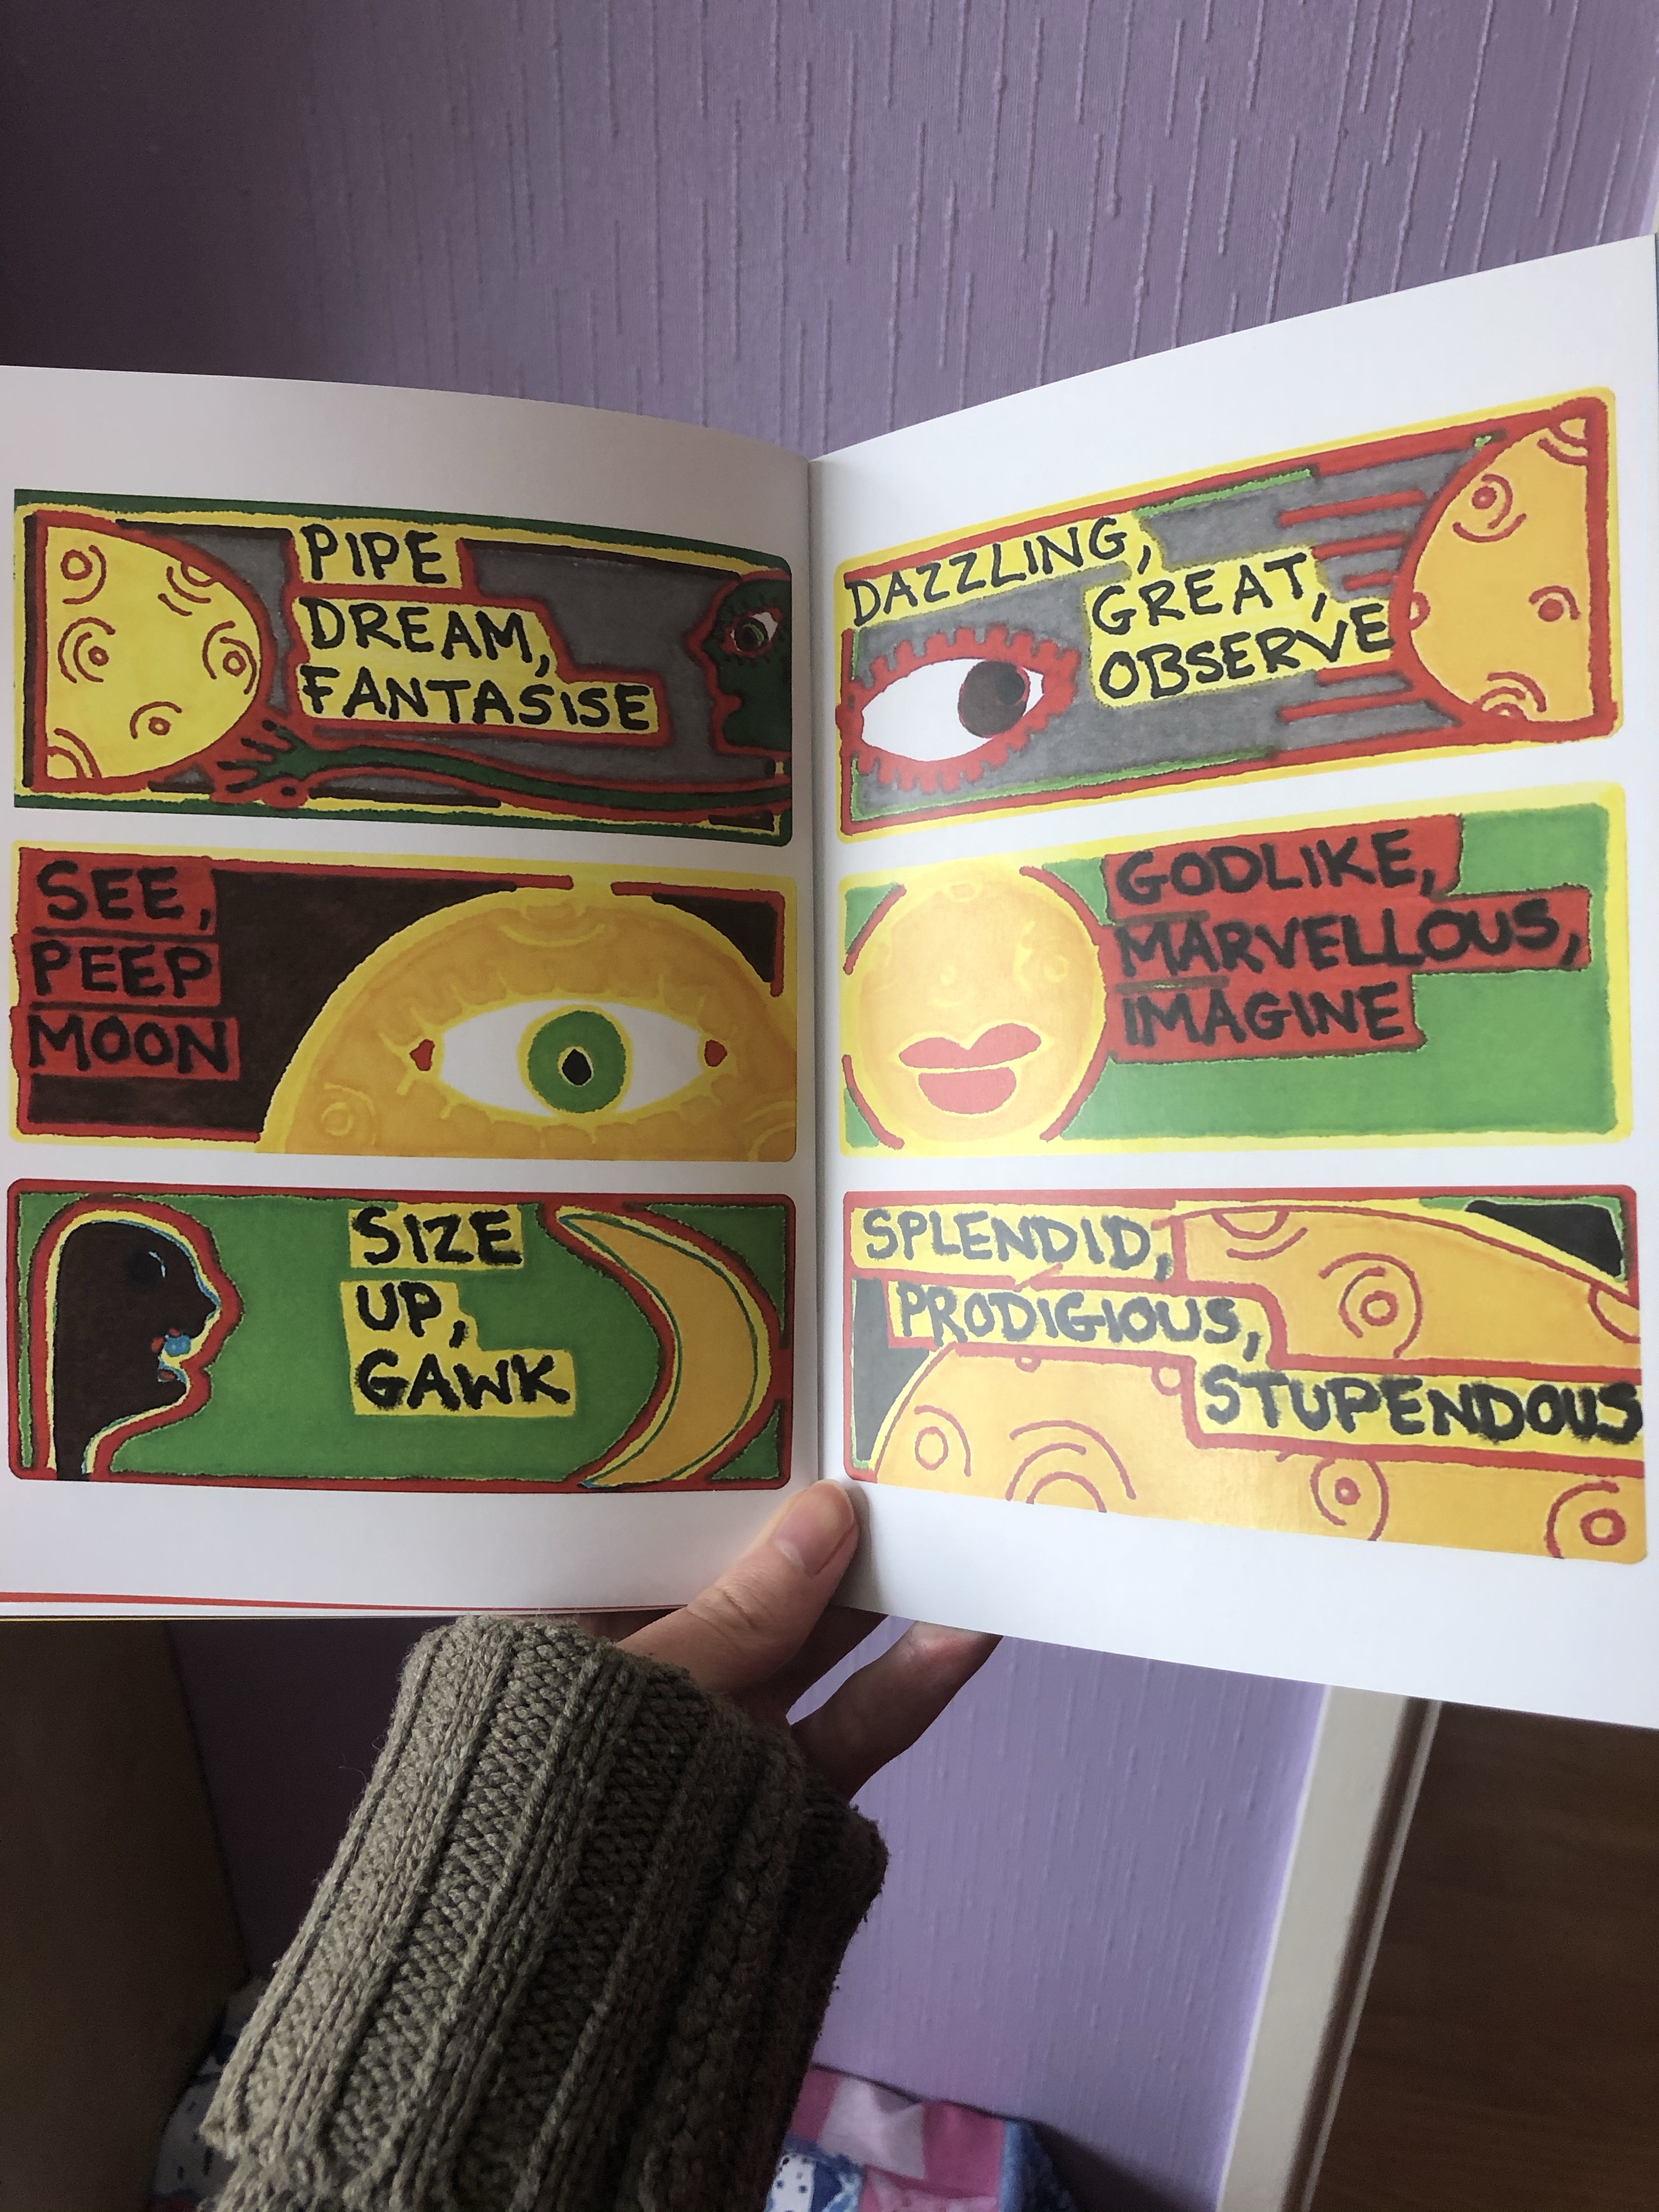 PIPE
DREAM,
FANTASISE
SEE,
PEEP
MOON
SIZE
UP,
GAWK
DAZZLING,
GREAT,
OBSERVE
GODLIKE,
MARVELLOUS,
IMAGINE
SPLENDID,
PRODIGIOUS,
STUPENDOUS